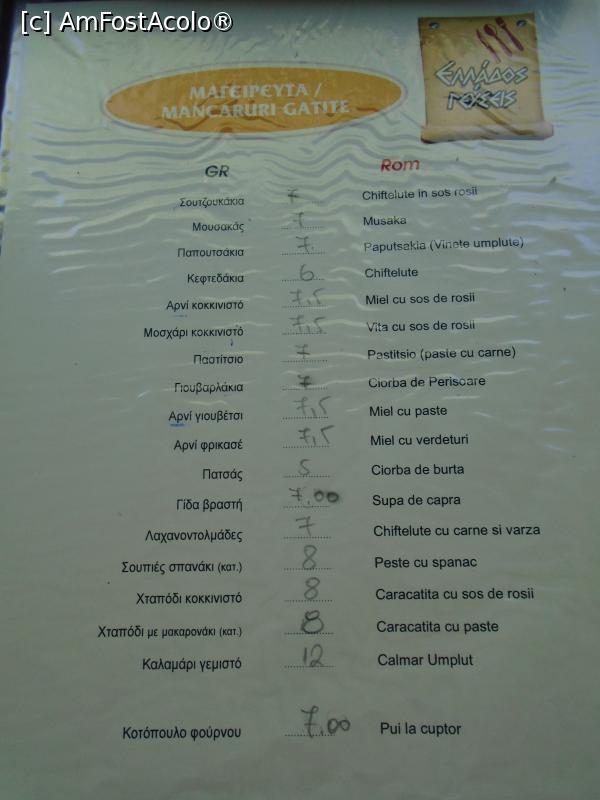 [c] AmFostAcolo®
ΜΑΓΕΙΡΕΥΤΑ /
MANCARURI GATITE
Ελλάδος
γεύσεις
GR Rom
Σουτζουκάκια 7 Chiftelute in sos rosii
Μουσακάς 7 Musaka
Παπουτσάκια 7 Paputsakia (Vinete umplute)
Κεφτεδάκια 6 Chiftelute
Αρνί κοκκινιστό 7,5 Miel cu sos de rosii
Μοσχάρι κοκκινιστό 7,5 Vita cu sos de rosii
Παστίτσιο 7 Pastitsio (paste cu carne)
Γιουβαρλάκια 7 Ciorba de Perisoare
Αρνί γιουβέτσι 7,5 Miel cu paste
Αρνί φρικασέ 7,5 Miel cu verdeturi
Πατσάς 5 Ciorba de burta
Γίδα βραστή 7,00 Supa de capra
Λαχανοντολμάδες 7 Chiftelute cu carne si varza
Σουπιές σπανάκι (κατ.) 8 Peste cu spanac
Χταπόδι κοκκινιστό 8 Caracatita cu sos de rosii
Χταπόδι με μακαρονάκι (κατ.) 8 Caracatita cu paste
Καλαμάρι γεμιστό 12 Calmar Umplut
Κοτόπουλο φούρνου 7.00 Pui la cuptor